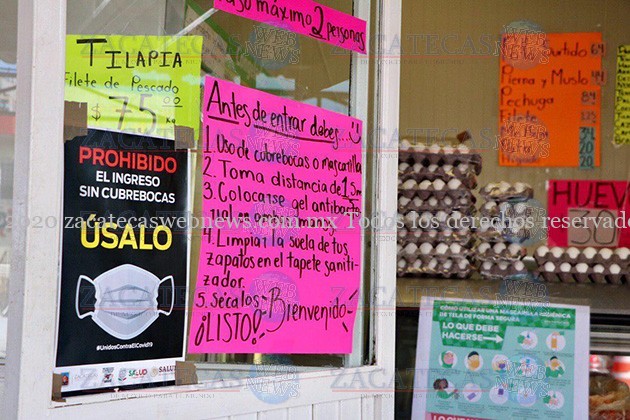 Paso máximo 2 personas
TILAPIA
Filete de Pescado
$ 75.00 KG
PROHIBIDO
EL INGRESO
SIN CUBREBOCAS
ÚSALO
#UnidosContraElCovid19
SALUD
Antes de entrar debes...
1. Uso de cubrebocas o mascarilla
2. Toma distancia de 1.5m
3. Colocarse gel antibac
4. Limpiar la suela de tus
zapatos en el tapete saniti-
zador.
5. Sécalos
¡LISTO!
Bienvenido
Surtido 64
Pierna y Muslo
Pechuga 84
Filete
HUEV
50
CÓMO UTILIZAR UNA MASCARILLA HIGIÉNICA
DE TELA DE FORMA SEGURA
LO QUE DEBE
HACERSE
ZACATECAS
2020 zacatecaswebnews.com.mx Todos los derechos reservados